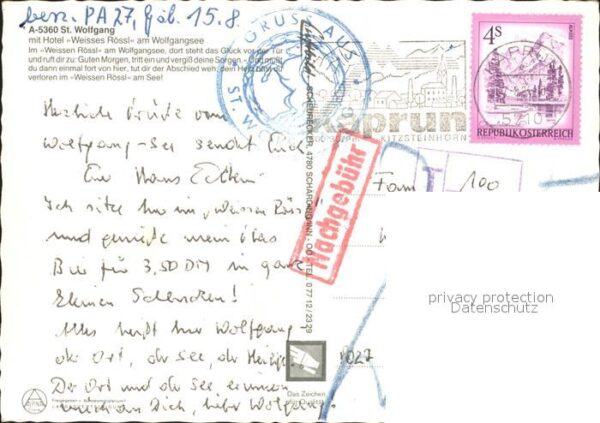 bez. PA 27, Geb. 15.8
A-5360 St. Wolfgang
mit Hotel »Weisses Rössl« am Wolfgangsee
Im »Weissen Rössl« am Wolfgangsee, dort steht das Glück vor der Tür
und ruft dir zu: Guten Morgen, tritt ein und vergiß deine Sorgen.
du dann einmal fort von hier, tut dir der Abschied weh, dein Herz
verloren im »Weissen Rössl« am See!
Herzliche Grüße vom
Wolfgang-See sendet Euch
Euer Hans
Ich sitze hier im "weissen Rössl"
und genieße mein
Bier für 3,50 DM in ganz
kleinen Schlucken!
Alles heißt hier Wolfgang
der Ort, der See, der Heilige.
Der Ort und der See erinnern
mich an Dich, lieber Wolfgang!
GRUSS AUS
ST. W
SCHARDING/INN
4780
Kaprun
KITZSTEINHORN
4S
REPUBLIK ÖSTERREICH
Nachgebühr
T 100
Fam
privacy protection
Datenschutz
1027
Das Zeichen
der Qualität